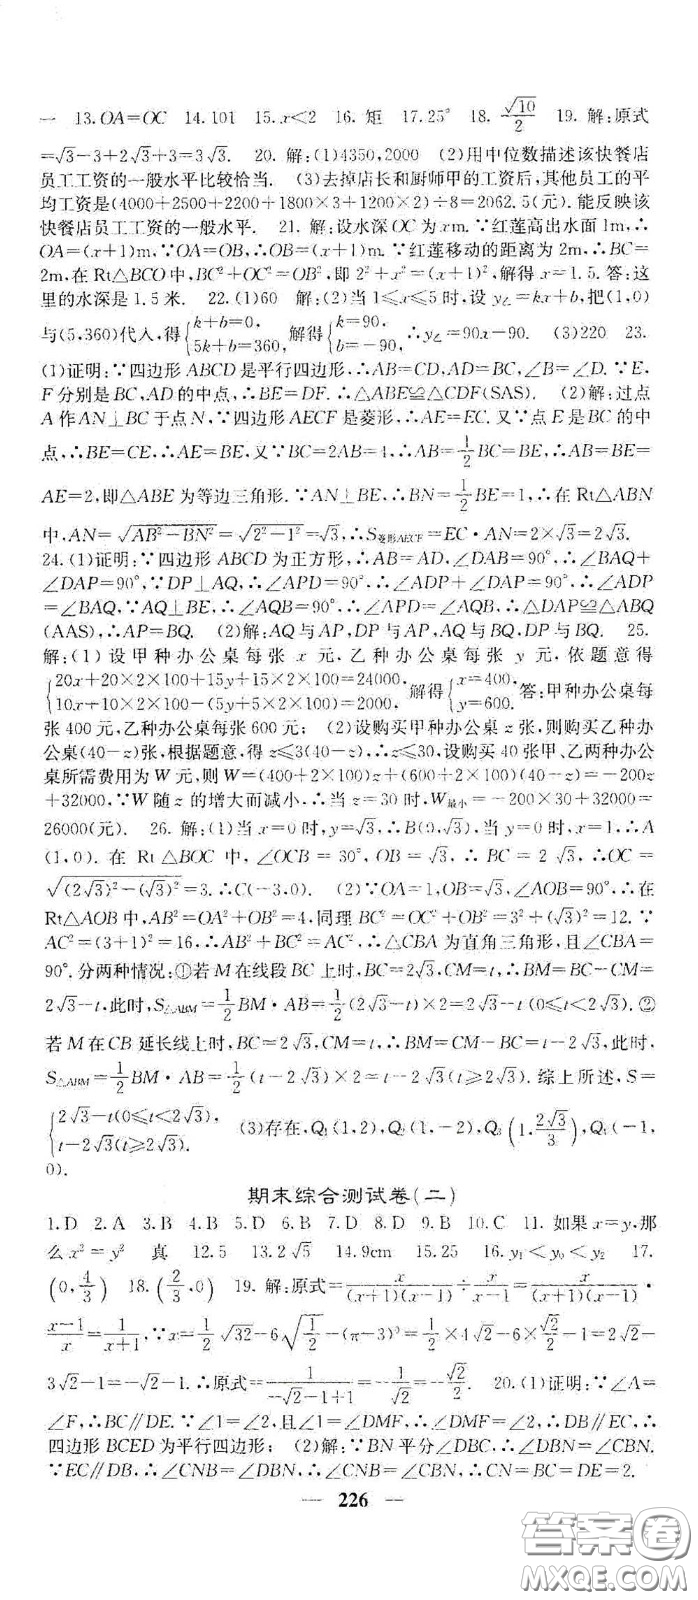 一 13.OA=OC 14.101 15.x<2 16.矩 17.25° 18.√10/2 19.解:原式
=√3-3+2√3+3=3√3. 20.解:(1)4350,2000 (2)用中位数描述该快餐店
员工工资的一般水平比较恰当. (3)去掉店长和厨师甲的工资后,其他员工的平
均工资是(4000+2500+2200+1800×3+1200×2)÷8=2062.5(元).能反映该
快餐店员工工资的一般水平. 21.解:设水深OC为xm.∵红莲高出水面1m,∴
OA=(x+1)m.∵OA=OB,∴OB=(x+1)m.∵红莲移动的距离为2m,∴BC=
2m,在Rt△BCO中,BC²+OC²=OB²,即2²+x²=(x+1)²,解得x=1.5.答:这
里的水深是1.5米. 22.(1)60 解:(2)当1≤x≤5时,设y乙=kx+b,把(1,0)
与(5,360)代入,得{k+b=0, 5k+b=360, 解得{k=90, b=-90, ∴y乙=90x-90. (3)220 23.
(1)证明:∵四边形ABCD是平行四边形,∴AB=CD,AD=BC,∠B=∠D.∵E,
F分别是BC,AD的中点,∴BE=DF.∴△ABE≌△CDF(SAS). (2)解:过点
A作AN⊥BC于点N,∵四边形AECF是菱形,∴AE=EC.又∵点E是BC的中
点,∴BE=CE,∴AE=BE,又∵BC=2AB=4,∴AB=1/2BC=BE,∴AB=BE=
AE=2,即△ABE为等边三角形.∵AN⊥BE,∴BN=1/2BE=1,∴在Rt△ABN
中,AN=√(AB²-BN²)=√(2²-1²)=√3,∴S菱形AECF=EC·AN=2×√3=2√3.
24.(1)证明:∵四边形ABCD为正方形,∴AB=AD,∠DAB=90°,∴∠BAQ+
∠DAP=90°,∵DP⊥AQ,∴∠APD=90°,∴∠ADP+∠DAP=90°,∴∠ADP
=∠BAQ,∵AQ⊥BE,∴∠AQB=90°,∴∠APD=∠AQB,∴△DAP≌△ABQ
(AAS),∴AP=BQ. (2)解:AQ与AP,DP与AP,AQ与BQ,DP与BQ. 25.
解:(1)设甲种办公桌每张x元,乙种办公桌每张y元,依题意得
{20x+20×2×100+15y+15×2×100=24000, 10x+10×2×100-(5y+5×2×100)=2000, 解得{x=400, y=600. 答:甲种办公桌每
张400元,乙种办公桌每张600元; (2)设购买甲种办公桌z张,则购买乙种办
公桌(40-z)张,根据题意,得z≤3(40-z),∴z≤30,设购买40张甲、乙两种办公
桌所需费用为W元,则W=(400+2×100)z+(600+2×100)(40-z)=-200z
+32000,∵W随z的增大而减小,∴当z=30时,W最小=-200×30+32000=
26000(元). 26.解:(1)当x=0时,y=√3,∴B(0,√3),当y=0时,x=1,∴A
(1,0).在Rt△BOC中,∠OCB=30°,OB=√3,∴BC=2√3,∴OC=
√((2√3)²-(√3)²)=3.∴C(-3,0). (2)∵OA=1,OB=√3,∠AOB=90°,∴在
Rt△AOB中,AB²=OA²+OB²=4,同理BC²=OC²+OB²=3²+(√3)²=12.∵
AC²=(3+1)²=16,∴AB²+BC²=AC²,∴△CBA为直角三角形,且∠CBA=
90°.分两种情况:①若M在线段BC上时,BC=2√3,CM=t,∴BM=BC-CM=
2√3-t,此时,S△ABM=1/2BM·AB=1/2(2√3-t)×2=2√3-t(0≤t<2√3).②
若M在CB延长线上时,BC=2√3,CM=t,∴BM=CM-BC=t-2√3,此时,
S△ABM=1/2BM·AB=1/2(t-2√3)×2=t-2√3(t≥2√3).综上所述,S=
{2√3-t(0≤t<2√3), t-2√3(t≥2√3). (3)存在,Q₁(1,2),Q₂(1,-2),Q₃(1,2√3/3),Q₄(-1,
0).
期末综合测试卷(二)
1.D 2.A 3.B 4.B 5.D 6.B 7.D 8.D 9.B 10.C 11.如果x=y,那
么x²=y² 真 12.5 13.2√5 14.9cm 15.25 16.y₁<y₀<y₂ 17.
(0,4/3) 18.(2/3,0) 19.解:原式=x/((x+1)(x-1))÷x/(x-1)=x/((x+1)(x-1))·
(x-1)/x=1/(x+1),∵x=1/2√32-6√(1/2)-(π-3)⁰=1/2×4√2-6×√2/2-1=2√2-
3√2-1=-√2-1.∴原式=1/(-√2-1+1)=-1/√2=-√2/2. 20.(1)证明:∵∠A=
∠F,∴BC∥DE.∵∠1=∠2,且∠1=∠DMF,∴∠2=∠DMF,∴DB∥EC,∴
四边形BCED为平行四边形; (2)解:∵BN平分∠DBC,∴∠DBN=∠CBN.
∵EC∥DB,∴∠CNB=∠DBN,∴∠CNB=∠CBN,∴CN=BC=DE=2.
— 226 —
答案圈
MXQE.COM